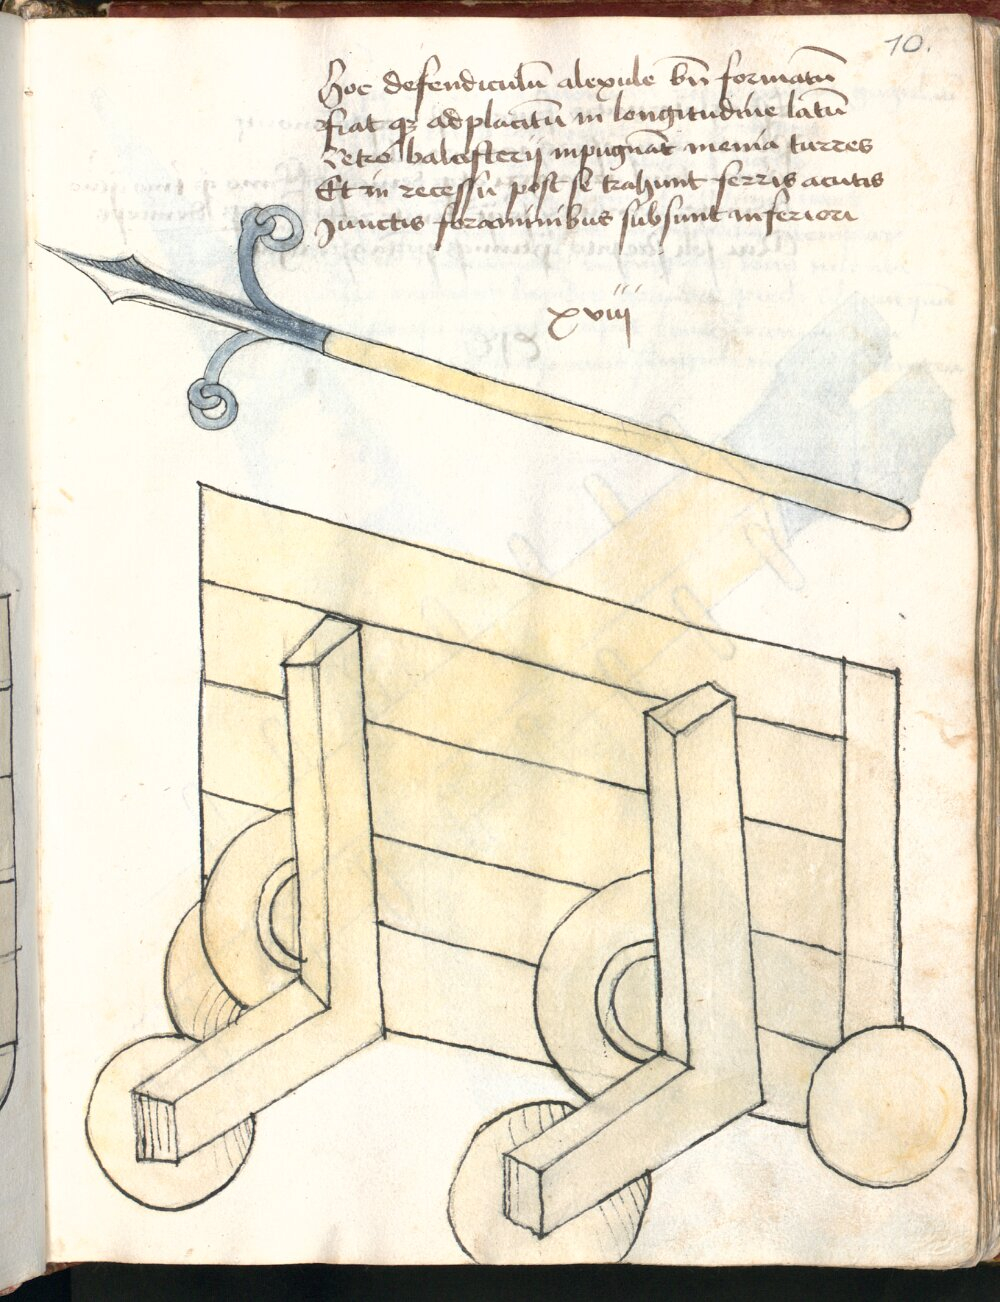 10.
Hoc defendiculū alexule bn̄ formatū
fiat qz ad placitū in longitudine latū
Retro balesterij inpugnāt menia turres
Et in recessu post se trahunt ferris acutis
Junctis foraminibus subsunt inferiori
xviiij